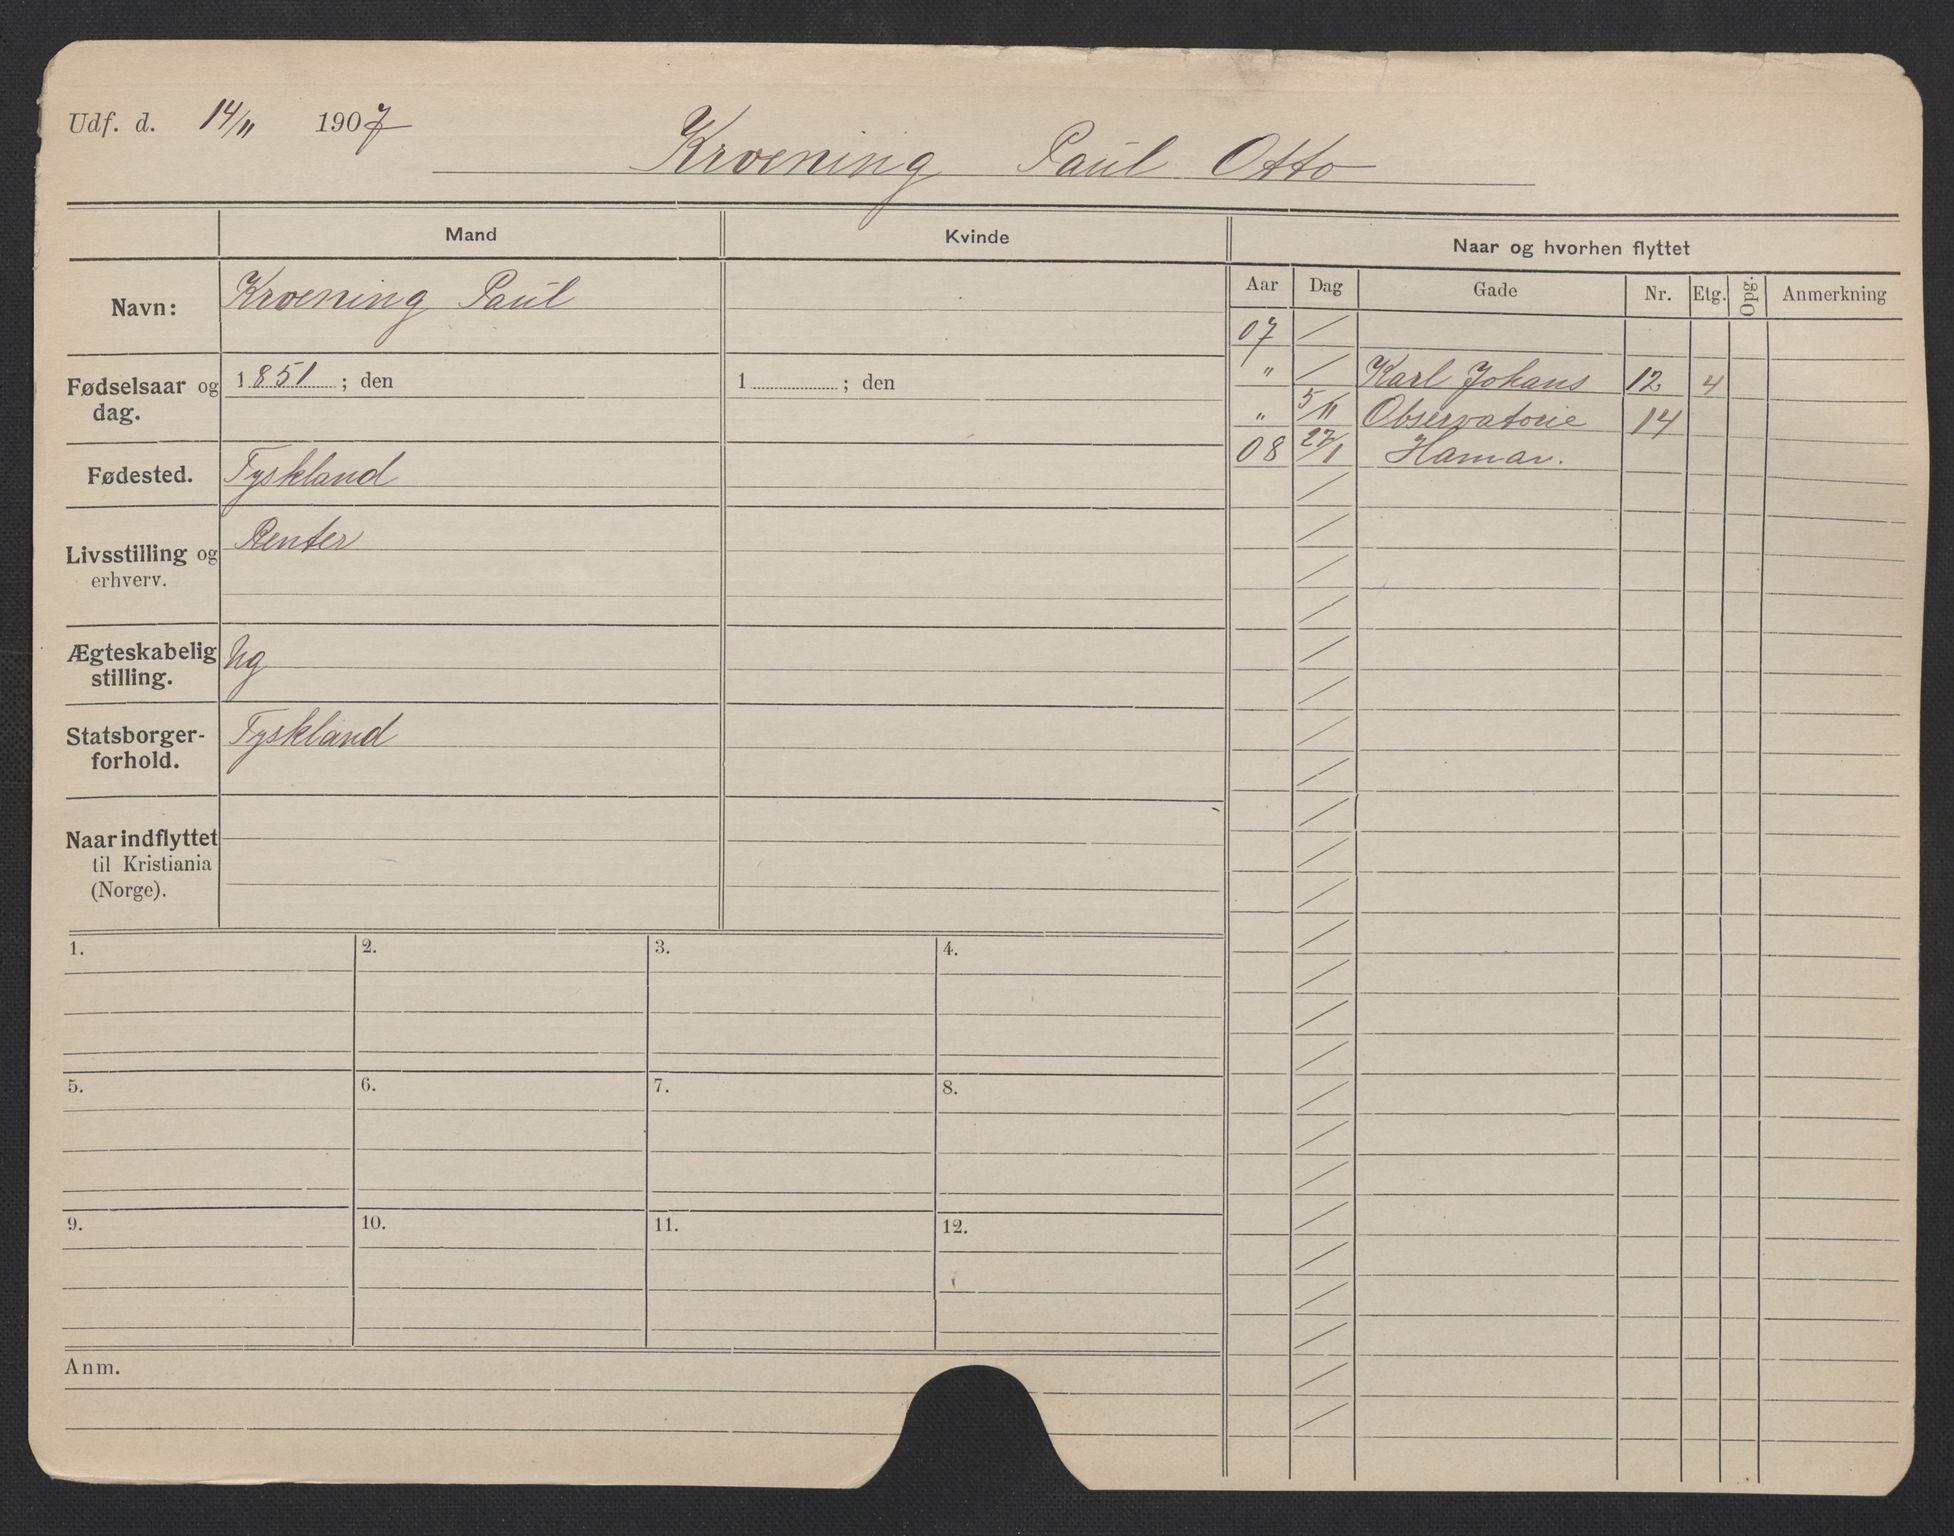 Udf. d. 14/11 1907
Kroening Paul Otto
Mand
Kvinde
Naar og hvorhen flyttet
Aar Dag Gade Nr. Etg. Opg. Anmerkning
Navn: Kroening Paul
Fødselsaar og dag. 1851; den
1 ; den
Fødested. Tyskland
Livsstilling og erhverv. Renter
Ægteskabelig stilling. Ug
Statsborgerforhold. Tyskland
Naar indflyttet
til Kristiania
(Norge).
07
" Karl Johans 12 4
" 5/11 Observatorie 14
08 27/1 Hamar.
1. 2. 3. 4.
5. 6. 7. 8.
9. 10. 11. 12.
Anm.